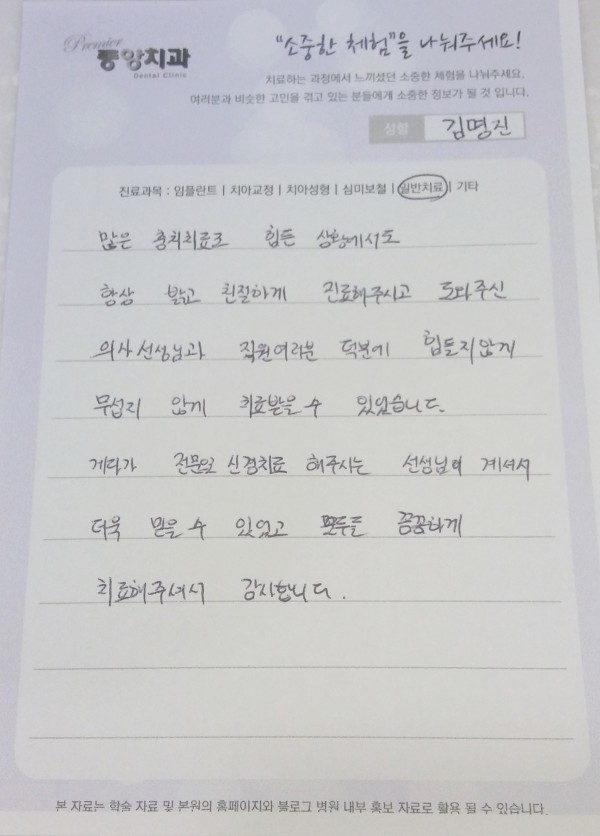 Premier
중앙치과
Dental Clinic
"소중한 체험"을 나눠주세요!
치료하는 과정에서 느끼셨던 소중한 체험을 나눠주세요.
여러분과 비슷한 고민을 겪고 있는 분들에게 소중한 정보가 될 것 입니다.
성함 김명진
진료과목 : 임플란트 | 치아교정 | 치아성형 | 심미보철 | 일반치료 | 기타
많은 충치치료로 힘든 상황에서도
항상 밝고 친절하게 진료해주시고 도와주신
의사선생님과 직원여러분 덕분에 힘들지않게
무섭지 않게 치료받을 수 있었습니다.
게다가 전문으로 신경치료 해주시는 선생님이 계셔서
더욱 믿을 수 있었고 모두들 꼼꼼하게
치료해주셔서 감사합니다.
본 자료는 학술 자료 및 본원의 홈페이지와 블로그 병원 내부 홍보 자료로 활용 될 수 있습니다.